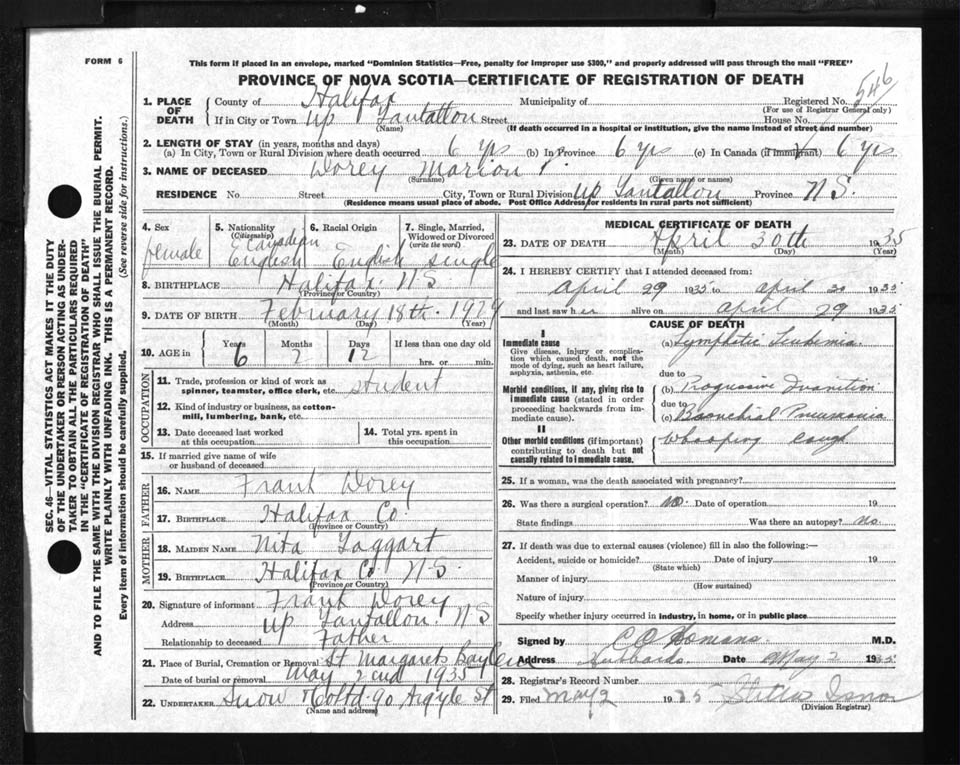 FORM 6
This form if placed in an envelope, marked "Dominion Statistics—Free, penalty for improper use $300," and properly addressed will pass through the mail "FREE"
PROVINCE OF NOVA SCOTIA—CERTIFICATE OF REGISTRATION OF DEATH
546
1. PLACE OF DEATH
County of Halifax Municipality of Registered No.
(For use of Registrar General only)
If in City or Town Up Tantallon Street House No.
(Name) (If death occurred in a hospital or institution, give the name instead of street and number)
2. LENGTH OF STAY (in years, months and days)
(a) In City, Town or Rural Division where death occurred 6 yrs (b) In Province 6 yrs (c) In Canada (if immigrant) 6 yrs
3. NAME OF DECEASED Dorey Marion
(Surname) (Given name or names)
RESIDENCE No. Street City, Town or Rural Division Up Tantallon Province N.S.
(Residence means usual place of abode. Post Office Address for residents in rural parts not sufficient)
4. Sex
female
5. Nationality
(Citizenship)
Canadian
English
6. Racial Origin
English
7. Single, Married, Widowed or Divorced
(write the word)
single
8. BIRTHPLACE Halifax N.S.
(Province or Country)
9. DATE OF BIRTH February 18th 1929
(Month) (Day) (Year)
10. AGE in
Years Months Days If less than one day old
6 2 12 hrs. or min.
OCCUPATION
11. Trade, profession or kind of work as
spinner, teamster, office clerk, etc. student
12. Kind of industry or business, as cotton-
mill, lumbering, bank, etc.
13. Date deceased last worked
at this occupation
14. Total yrs. spent in
this occupation
15. If married give name of wife
or husband of deceased
FATHER
16. NAME Frank Dorey
17. BIRTHPLACE Halifax Co
(Province or Country)
MOTHER
18. MAIDEN NAME Nita Taggart
19. BIRTHPLACE Halifax Co N.S.
(Province or Country)
20. Signature of informant Frank Dorey
Address Up Tantallon N S
Relationship to deceased Father
21. Place of Burial, Cremation or Removal St Margarets Bay
Date of burial or removal May 2nd 1935
22. UNDERTAKER Snow & Co Ltd 90 Argyle St
(Name and address)
MEDICAL CERTIFICATE OF DEATH
23. DATE OF DEATH April 30th 1935
(Month) (Day) (Year)
24. I HEREBY CERTIFY that I attended deceased from:
April 29 1935 to April 30 1935
and last saw her alive on April 29 1935
CAUSE OF DEATH
I
Immediate cause
Give disease, injury or complica-
tion which caused death, not the
mode of dying, such as heart failure,
asphyxia, asthenia, etc.
(a) Lymphatic Leukimia
due to
Morbid conditions, if any, giving rise to
immediate cause (stated in order
proceeding backwards from im-
mediate cause).
(b) Progressive Inanition
due to
(c) Bronchial Pneumonia
II
Other morbid conditions (if important)
contributing to death but not
causally related to immediate cause.
Whooping Cough
25. If a woman, was the death associated with pregnancy?
26. Was there a surgical operation? No. Date of operation 19
State findings Was there an autopsy? No.
27. If death was due to external causes (violence) fill in also the following:—
Accident, suicide or homicide? Date of injury 19
(State which)
Manner of injury
(How sustained)
Nature of injury
Specify whether injury occurred in industry, in home, or in public place
Signed by C O Homans M.D.
Address Hubbards. Date May 2 1935
28. Registrar's Record Number
29. Filed May 2 1935
(Division Registrar)
SEC. 46—VITAL STATISTICS ACT MAKES IT THE DUTY
OF THE UNDERTAKER OR PERSON ACTING AS UNDER-
TAKER TO OBTAIN ALL THE PARTICULARS REQUIRED
IN THE "CERTIFICATE OF REGISTRATION OF DEATH"
AND TO FILE THE SAME WITH THE DIVISION REGISTRAR WHO SHALL ISSUE THE BURIAL PERMIT.
WRITE PLAINLY WITH UNFADING INK. THIS IS A PERMANENT RECORD.
Every item of information should be carefully supplied. (See reverse side for instructions.)